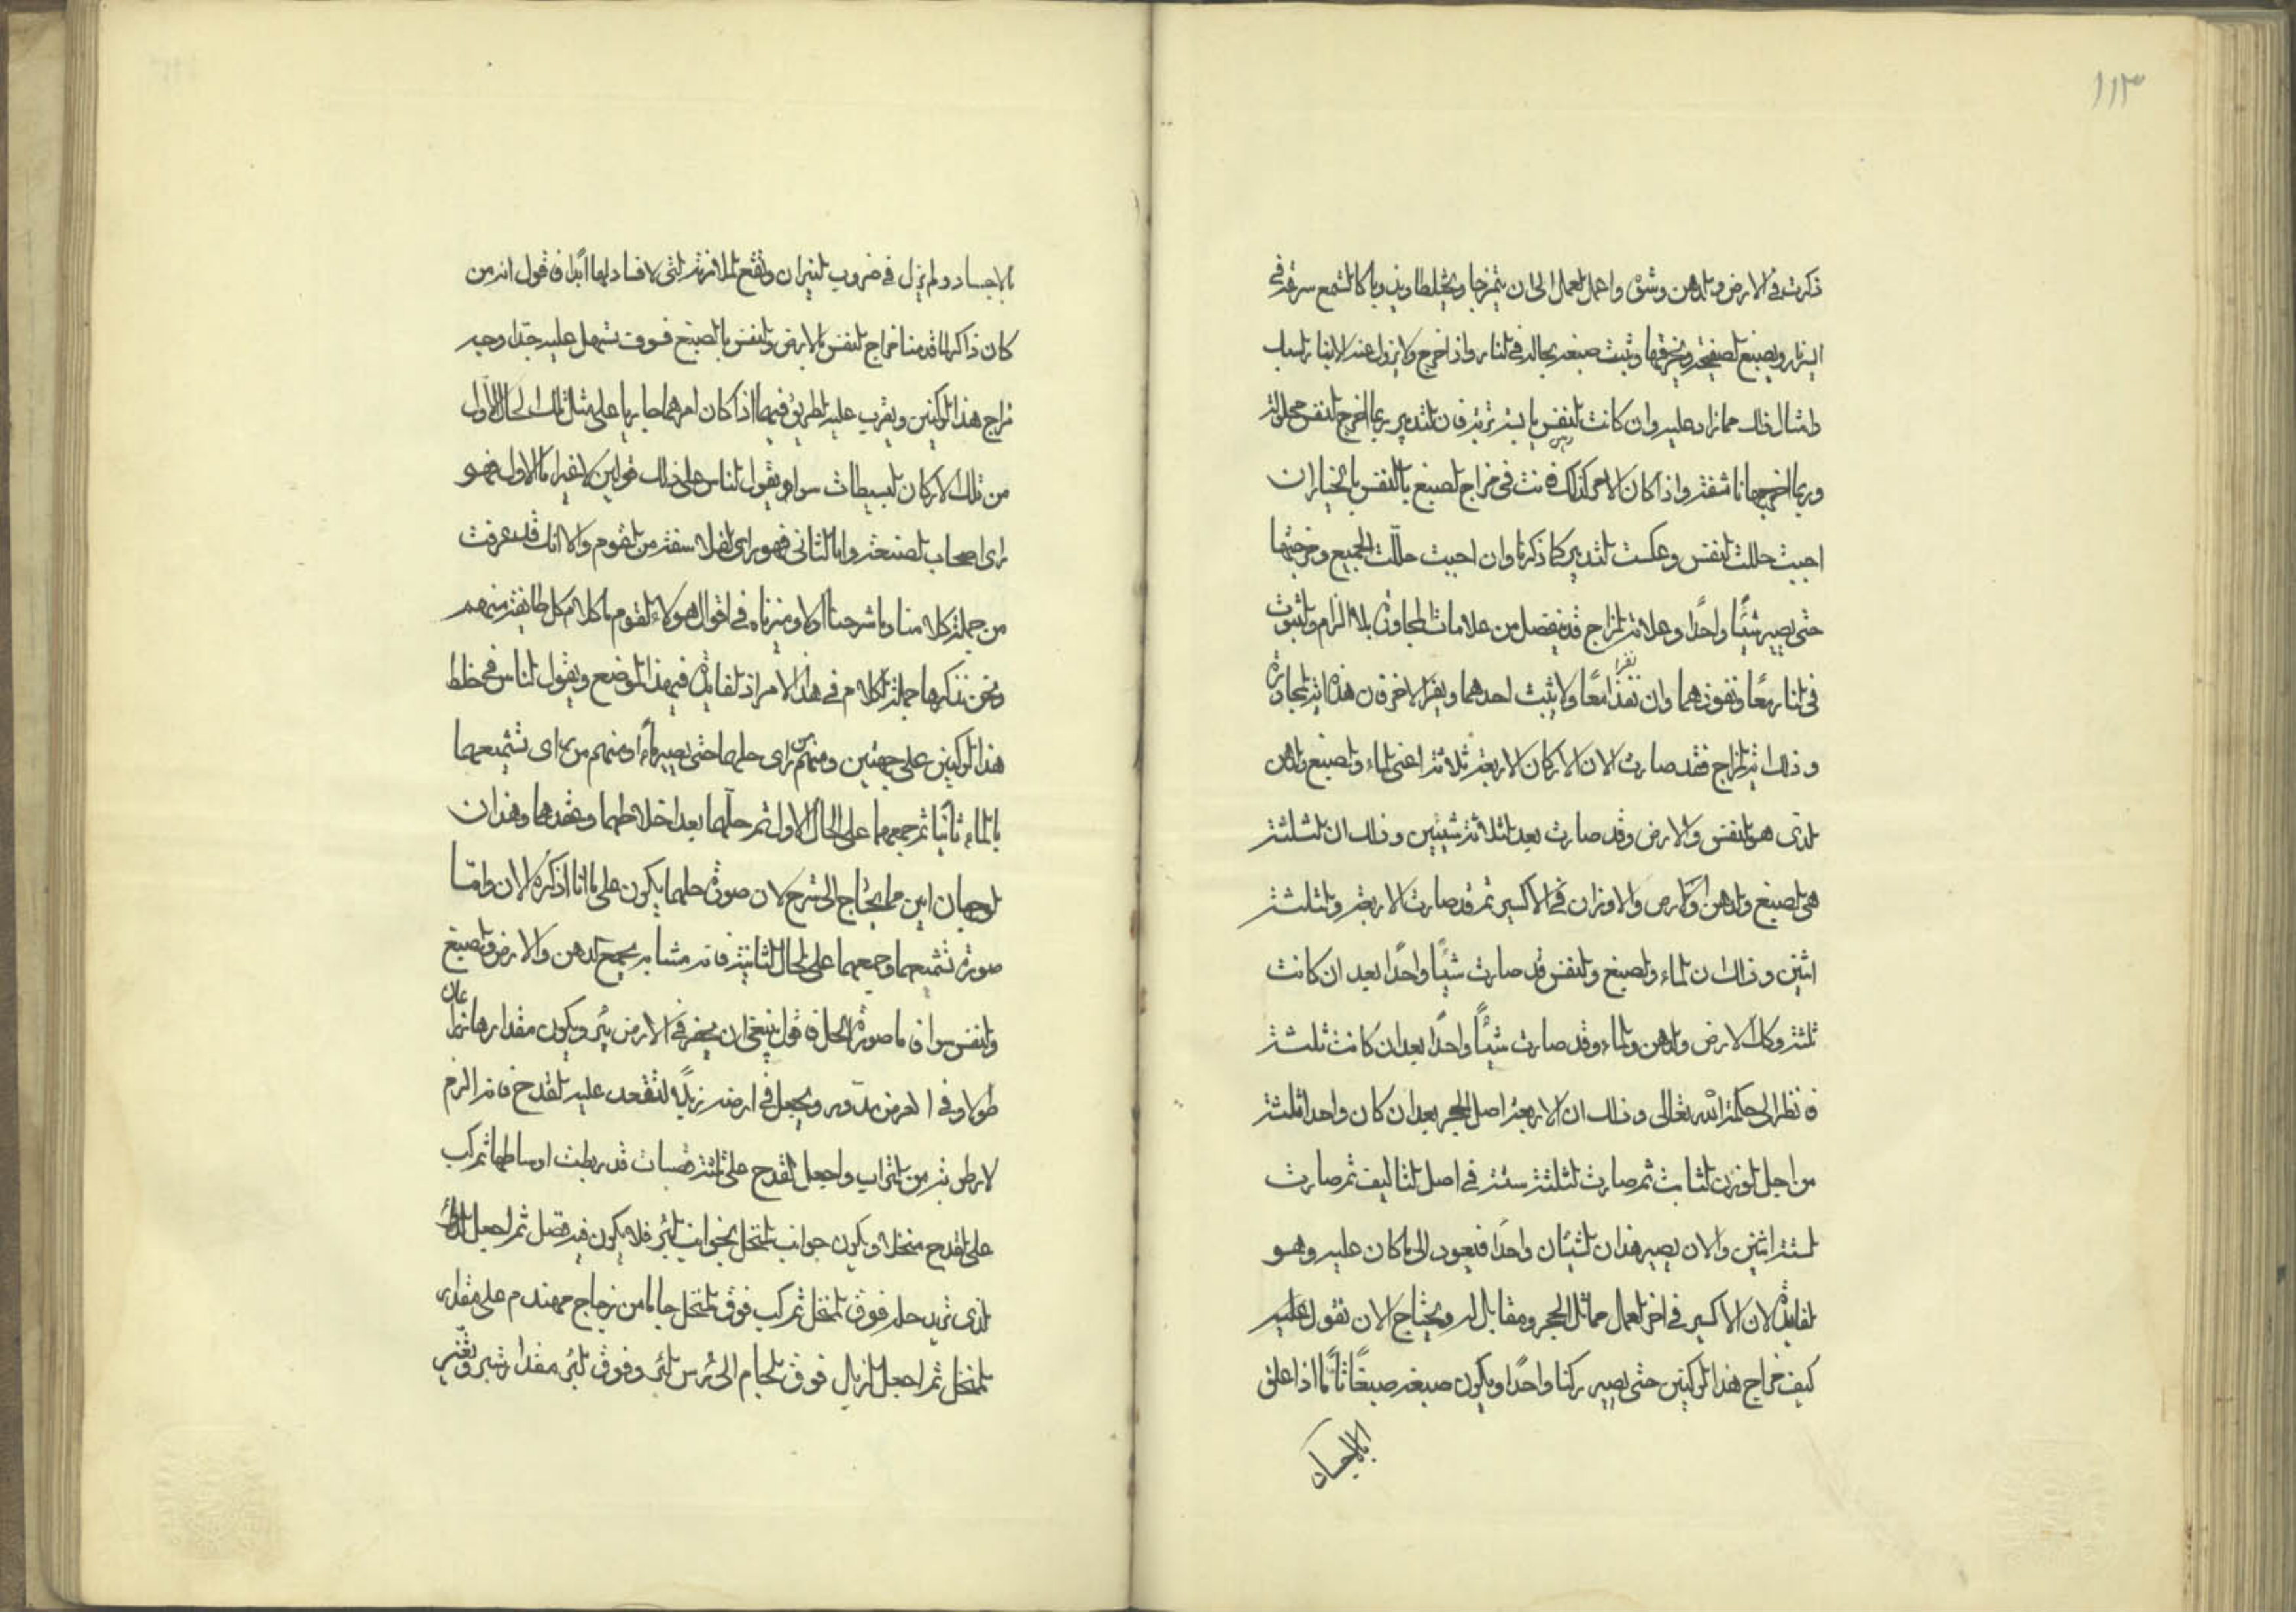 ١١٣
ذكرت فى الارض والدهن وشق واعمل العمل الى ان يتمزجا ويختلطا ويذوبا كالشمع سرقه فى
النار ويصبغ الصفيحة ويخرقها وثبت صبغه بحاله فى النار واذا خرج ولا يزول عنه
ذلك مما زاد عليه وان كانت النفس يابسة فان التدبير ربما اخرج النفس محلولة
وربما اخرجها ناشفة واذا كان الامر كذلك فانت فى مزاج الصبغ بالنفس بالخيار ان
احببت حللت النفس وعكست التدبير كما ذكرنا وان احببت حللت الجميع ومزجتها
حتى يصير شيئًا واحدًا وعلامة المزاج قد ينفصل من علامات المجاورة بلا الزام والثبوت
فى النار معًا ونفوذهما وان نفذا معًا ولا يثبت احدهما ويفر الاخر فان هذه اية المجاورة
وذلك اية المزاج فقد صارت الان الاركان الاربعة ثلاثة اعنى الماء والصبغ والدهن
الذى هو النفس والارض وقد صارت بعد الثلاثة شيئين وذلك ان الثلثة
هى الصبغ والدهن والارض والاوزان فى الاكسير ثم قد صارت الاربعة والثلثة
اثنين وذلك ان الماء والصبغ والنفس قد صارت شيئًا واحدًا بعد ان كانت
ثلثة وكك الارض والدهن والماء وقد صارت شيئًا واحدًا بعد ان كانت ثلثة
فانظر الى حكمة الله تعالى وذلك ان الاربعة اصل الحجر بعد ان كان واحدا ثلثة
من اجل الوزن الثابت ثم صارت الثلثة ستة فى اصل التاليف ثم صارت
الستة اثنين والان يصير هذان الشيئان واحدًا فيعود الى ما كان عليه وهو
الفايدة لان الاكسير فى اخر العمل مماثل الحجر ومقابل له ويحتاج الان نقول عليه
كيف مزاج هذا الركنين حتى يصير ركنا واحدًا ويكون صبغه صبغًا تامًّا اذا علق
بالاجساد
بالاجساد ولم يزل فى ضروب النيران ونقع الملازمة التى لا فساد لها ابدًا فاقول انه من
كان ذاكرا لما قدمنا مزاج النفس بالارض والنفس بالصبغ فسوف تسهل عليه جدًّا وجه
مزاج هذا الركنين ويقرب عليه الطريق فيها اذا كان امرهما جاريا على مثل تلك الحال الاول
من تلك الاركان البسيطات سوا ويقول الناس على ذلك قولين لا غير اما الاول فهو
راى اصحاب الصنعة واما الثانى فهو راى الفلاسفة من القوم والا انك قد عرفت
من جملة كلامنا وما شرحنا اولا وميزناه فى اقوال هولاء القوم ما كلام كل طايفة منهم
ونحن نذكرها جملة الكلام فى هذا الامر اذ الفايدة فى هذا الموضع ويقول الناس فى خلط
هذا الركنين على جهتين ومنهم من راى حلهما حتى يصير ماءً ومنهم من راى تشميعهما
بالماء ثانيًا ثم جمعهما على الحال الاول ثم حلهما بعد اختلاطهما وعقدهما وهذان
الوجهان ابين مما يحتاج الى شرح لان صورة حلهما يكون على ما انا اذكره الان واما
صورة تشميعهما وجمعهما على الحال الثانية فانه مشابه بجمع الدهن والارض والصبغ
والنفس سوا فاما صورة الحل فاقول ينبغى ان يحفر فى الارض بئر ويكون مقدارها ذراعان
طولا وفى العرض مدور ويجعل فى ارضه زبلًا لتقعد عليه القدح فانه الزم
لا رطوبة من التراب واجعل القدح على ثلثة قصبات قد ربطت اوساطها ثم ركب
على القدح منخلا ويكون جوانب المنخل بجوانب البئر فلا يكون فيه فصل ثم اجعل الدواء
الذى تريد حله فوق المنخل ثم ركب فوق المنخل جاما من زجاج مهندم على مقدار
المنخل ثم اجعل الزبل فوق الجام الى راس البئر وفوق البئر مقدار شبر